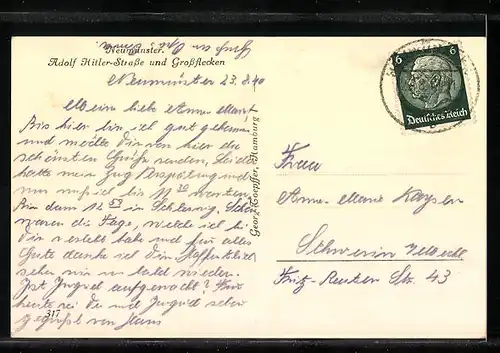 Gruß an Opa! Hans.
Neumünster.
Adolf Hitler-Straße und Großflecken
Neumünster 23.8.40
Meine liebe Anne-Marie!
Bis hier bin ich gut gekommen
und möchte Dir von hier die
schönsten Grüße senden. Leider
hatte mein Zug Verspätung und
muß ich bis 11 30 warten.
Bin dann 12 53 in Schleswig. Schön
waren die Tage, welche ich bei
Dir verlebt habe und für alles
Gute danke ich Dir. Hoffentlich
sehen wir uns bald wieder.
Ist Ingrid aufgewacht?
heute sei Du mit Ingrid sehr
gegrüßt von Hans
317
Georg Toepffer, Hamburg
6 6
Deutsches Reich
Frau
Anne-Marie Kayser
Schwerin Meckl
Fritz-Reuter Str. 43